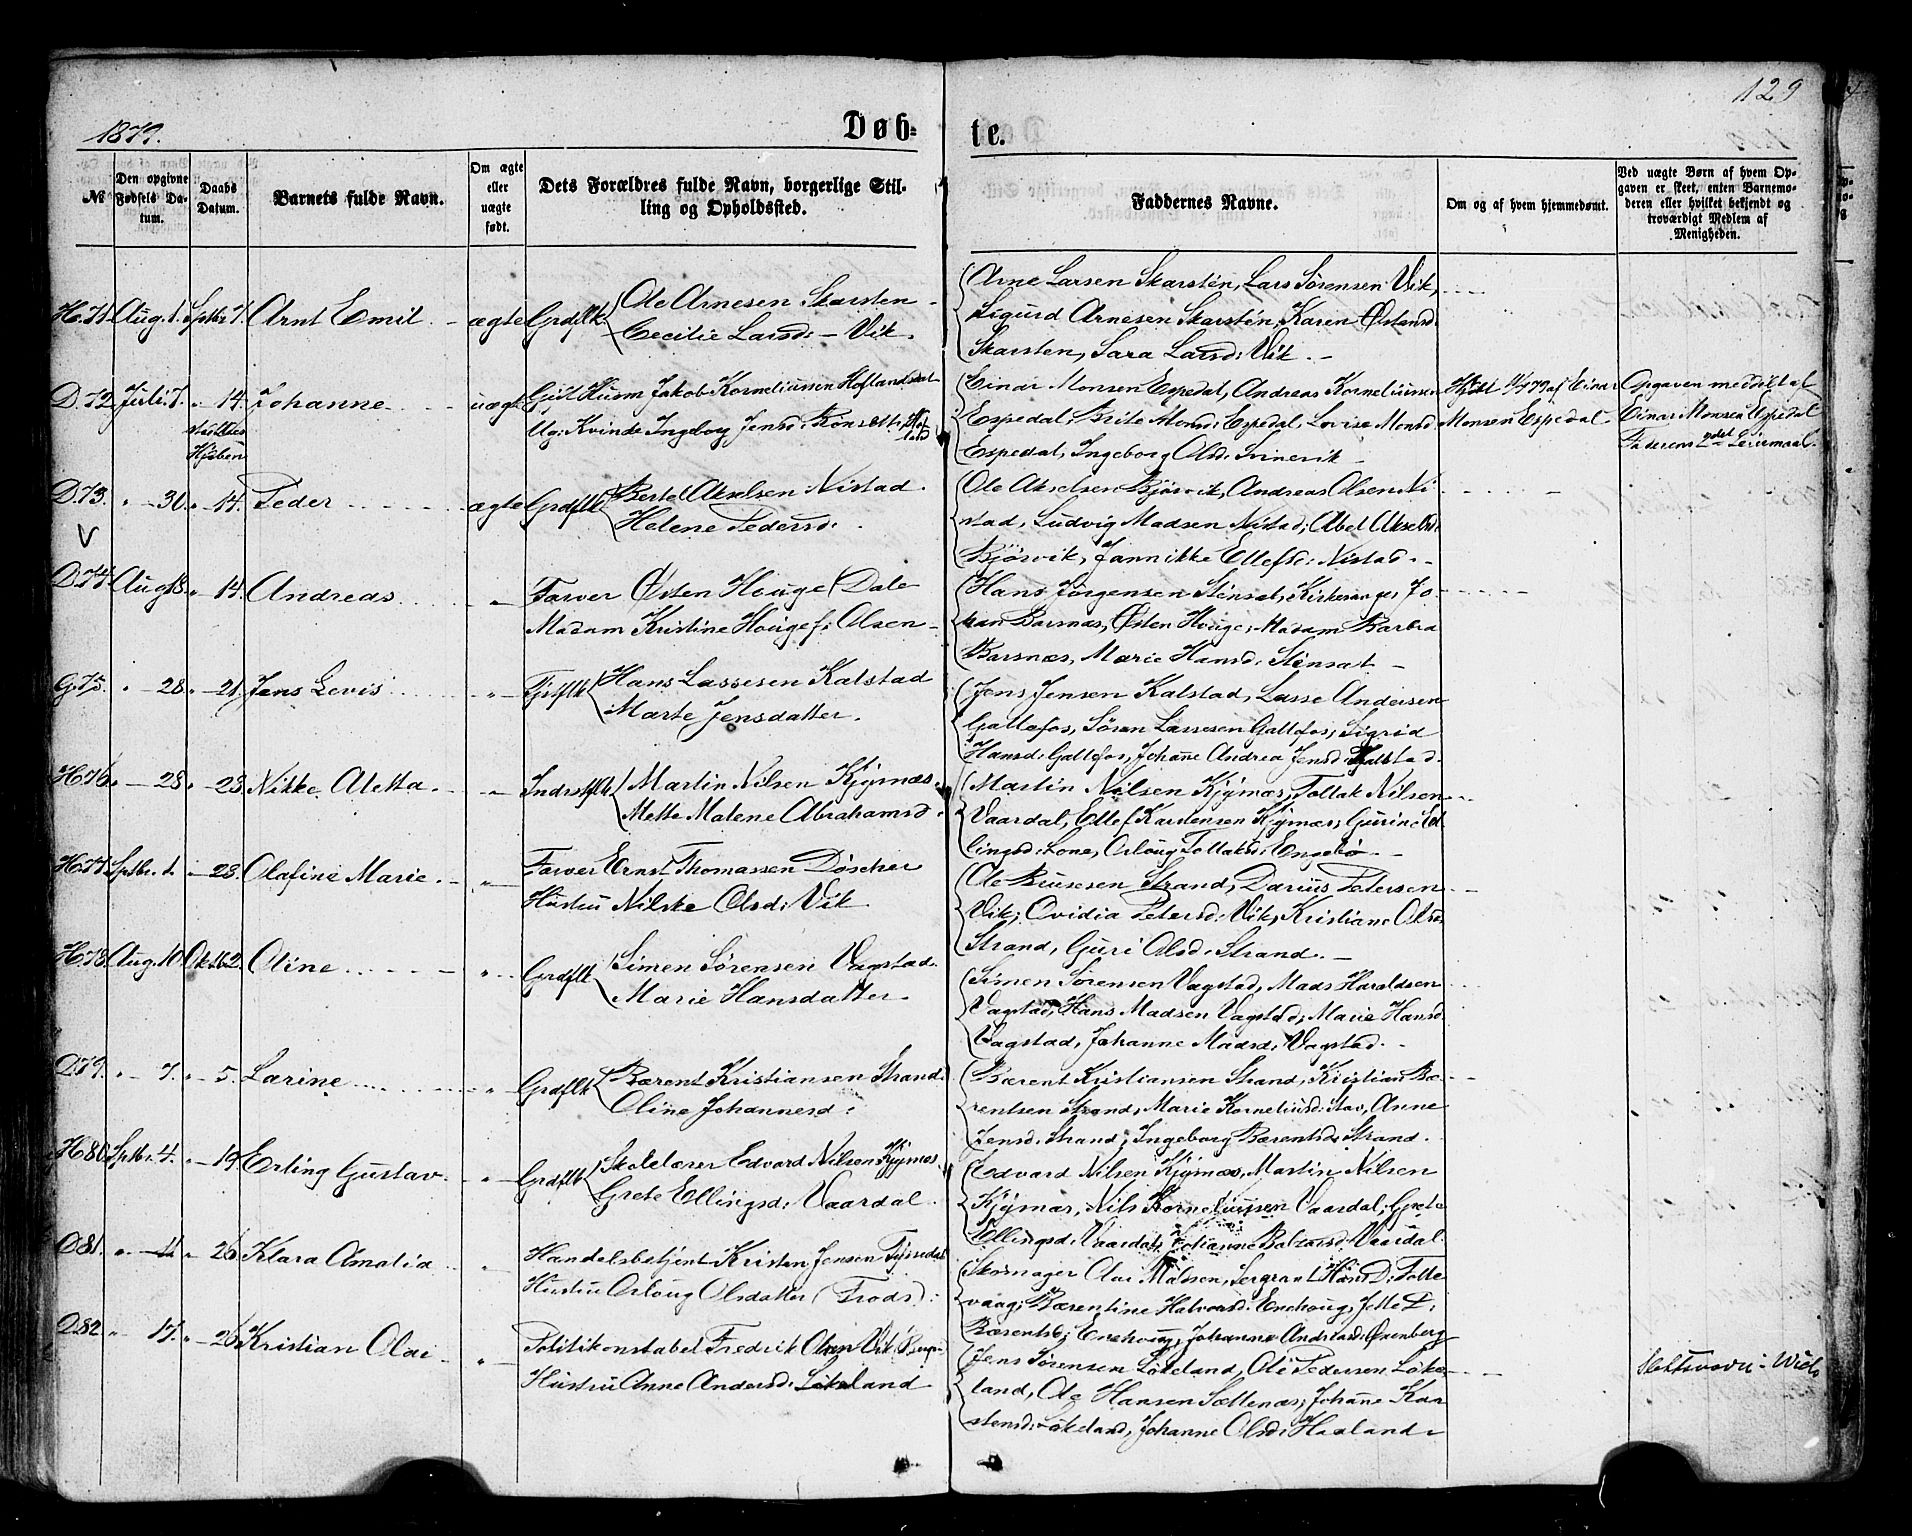 129
1879.
Døb-
te.
№
Den opgivne Fødsels Datum.
Daabs Datum.
Barnets fulde Navn.
Om ægte eller uægte født.
Dets Forældres fulde Navn, borgerlige Stilling og Opholdssted.
Faddernes Navne.
Om og af hvem hjemmedøbt.
Ved uægte Børn af hvem Opgaven er skeet, enten Barnemoderen eller hvilket bekjendt og troværdigt Medlem af Menigheden.
H. 71. Aug. 1. Septbr 7. Arnt Emil - ægte Grdflk Ole Arnesen Skarsten -
Cecilie Larsd: - Vik.
Arne Larsen Skarsten, Lars Sørensen Vik,
Sigurd Arnesen Skarsten, Karen Østensd:
Skarsten, Sara Larsd: Vik. -
D. 72 Juli 7. " 14. Johanne uægte Gift Husm Jakob Korneliussen
Ug: Kvinde Ingeborg Jensd:
Hjeben
Einar Monsen Espedal, Andreas Korneliussen
Espedal, Brite Monsd: Espedal, Lovise Monsd
Espedal, Ingeborg Olsd: Svinevik -
af Einar
Monsen Espedal -
Opgaven meddelt af
Einar Monsen Espedal
Faderens 2det Leiermaal.
D. 73. " - 30. " 14. Peder ægte Grdflk Bertel Akselsen Nistad.
Helene Pedersd:
Ole Akselsen Bjørvik, Andreas Olsen Ni
stad, Ludvig Madsen Nistad, Abel Akselsd:
Bjørvik, Jannikke Ellefsd: Nistad. -
D. 74. Aug 18. " 14. Andreas " Farver Østen Houge (Dale
Madam Kristine Houge f: Olsen -
Hans Jørgensen Stensæt, Kirkesanger, Jo-
han Barsnæs, Østen Houge, Madam Barbra
Barsnæs, Marie Hansd: Stensæt -
G. 75. " - 28. " - 21. Jens Levis " Hans Lassesen Kalstad
Marte Jensdatter.
Jens Jensen Kalstad, Lasse Andersen
Gallefos, Søren Lassesen Gallefos, Sigrid
Hansd: Gallefos, Johanne Andrea Jensd: Kalstad.
H. 76 " - 28. " - 23. Nikke Aletta " Indrstflk Martin Nilsen Kjymæs.
Mette Malene Abrahamsd.
Martin Nilsen Kjymæs, Tollak Nilsen
Vaardal, Ellef Karstensen Kjymæs, Gurine El
lingsd: Lone, Orloug Tollaksd: Engebø -
H. 77. Septbr. 1. " - 23. Olafine Marie. " Farver Ernst Thomassen Döscher
Hustru Nilske Olsd: Vik.
Ole Strand, Darius Petersen
Vik, Ovidia Petersd: Vik, Kristiane Olsd
Strand, Guri Olsd: Strand. -
H. 78. Aug. 10. Oktb 2. Oline " Grdflk Simen Sørensen Vagstad.
Marie Hansdatter.
Simen Sørensen Vagstad, Mads Haraldsen
Vagstad, Hans Madsen Vagstad, Marie Hansd.
Vagstad, Johanne Madsd: Vagstad. -
D. 79. " - 7. " - 5. Larine " Grdflk Bærent Kristiansen Strand.
Oline Johannesd:
Bærent Kristiansen Strand, Kristian Bæ
rentsen Strand, Marie Korneliusd: Stav, Anne
Jensd: Strand, Ingeborg Bærentsd: Strand.
H 80 Septbr. 4. " - 19. Erling Gustav. " Grdflk Skolelærer Edvard Nilsen Kjymæs.
Grete Ellingsd: Vaardal.
Edvard Nilsen Kjymæs, Martin Nilsen
Kjymæs, Nils Korneliussen Vaardal, Grete
Ellingsd: Vaardal, Johanne Vaardal.
D 81. " - 11. " 26. Klara Amalia " Handelsbetjent Kristen Jensen
Hustru Orloug Olsdatter
Skomager Olai Madsen, Sergeant
vaag, Bærentine Halvorsd: Enehoug,
Bærentsd: Enehoug, Johanne
D. 82. " 17. " - 26. Kristian Olai " Politikonstabel Fredrik Olsen Vik
Hustru Anne Andersd: Løkeland
Jens Sørensen Løkeland, Ole Pedersen Løke
land, Ole Hansen Sættenæs, Johanne Kar
stensd: Løkeland, Johanne Olsd: Haaland -